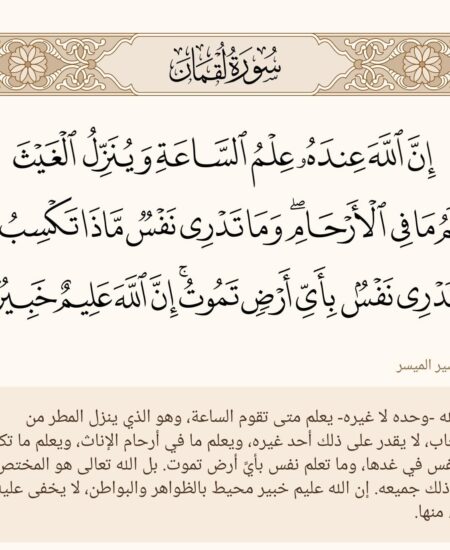 سُورَةُ لُقْمَانَ
إِنَّ ٱللَّهَ عِندَهُۥ عِلْمُ ٱلسَّاعَةِ وَيُنَزِّلُ ٱلْغَيْثَ
مُ مَا فِى ٱلْأَرْحَامِۖ وَمَا تَدْرِى نَفْسٌ مَّاذَا تَكْسِبُ
تَدْرِى نَفْسٌۢ بِأَىِّ أَرْضٍ تَمُوتُۚ إِنَّ ٱللَّهَ عَلِيمٌ خَبِيرٌ
الميسر
-وحده لا غيره- يعلم متى تقوم الساعة، وهو الذي ينزل المطر من
لا يقدر على ذلك أحد غيره، ويعلم ما في أرحام الإناث، ويعلم ما
في غدها، وما تعلم نفس بأيِّ أرض تموت. بل الله تعالى هو المختص
ذلك جميعه. إن الله عليم خبير محيط بالظواهر والبواطن، لا يخفى عليه
منها.